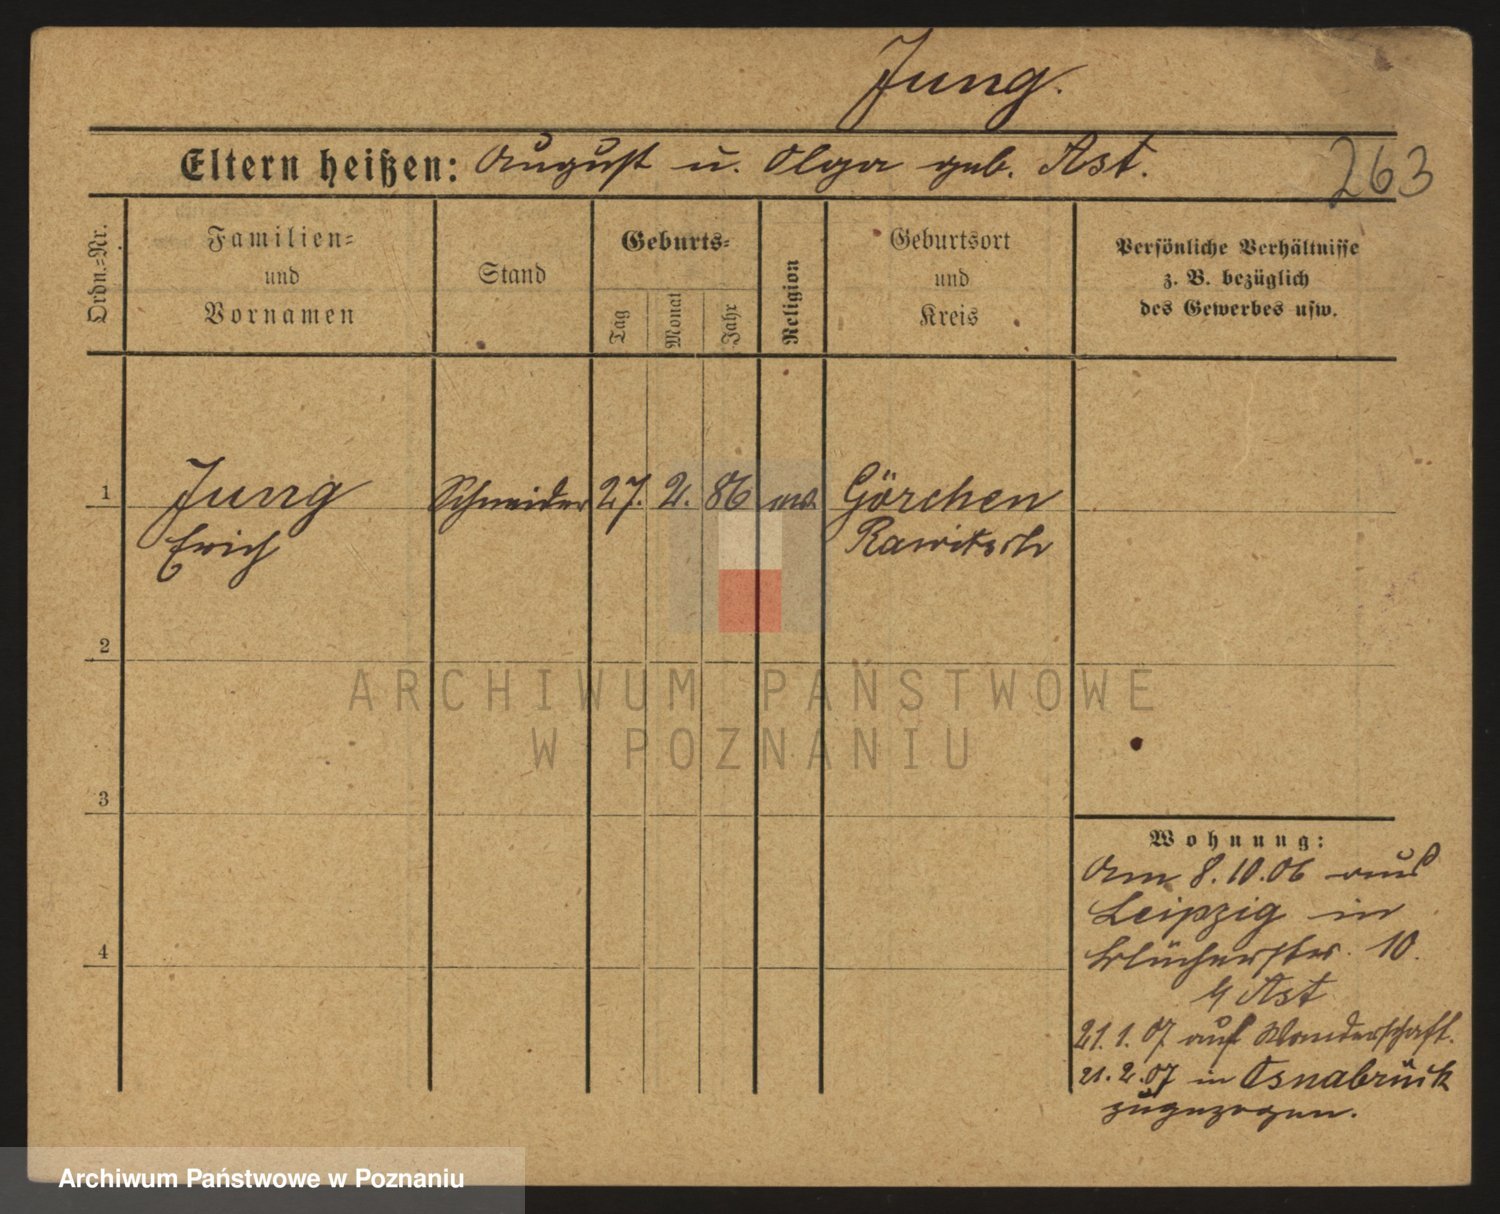 Jung.
Eltern heißen: August u. Olga geb. Ast.
263
Ordn.=Nr.
Familien=
und
Vornamen
Stand
Geburts=
Tag
Monat
Jahr
Religion
Geburtsort
und
Kreis
Persönliche Verhältnisse
z. B. bezüglich
des Gewerbes usw.
1 Jung Schneider 27. 2. 86 ev. Görchen
Erich Rawitsch
2
3
4
Wohnung:
Am 8.10.06 aus
Leipzig in
Blücherstr. 10.
b/ Ast
21.1.07 auf Wanderschaft.
21.2.07 in Osnabrück
zugezogen.
ARCHIWUM PAŃSTWOWE
W POZNANIU
Archiwum Państwowe w Poznaniu